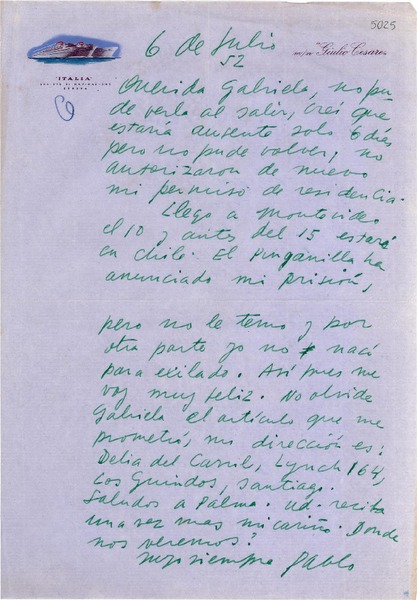 5025
"ITALIA"
SOCIETÀ DI NAVIGAZIONE
GENOVA
m/n "Giulio Cesare"
6 de Julio
52
Querida Gabriela, no pu-
de verla al salir, creí que
estaría ausente solo 6 días
pero no pude volver, no
autorizaron de nuevo
mi permiso de residencia.
Llego a Montevideo
el 10 y antes del 15 estaré
en Chile. El Pinganilla ha
anunciado mi prisión,
pero no le temo y por
otra parte yo no nací
para exilado. Así pues me
voy muy feliz. No olvide
Gabriela el artículo que me
prometió, mi dirección es:
Delia del Carril, Lynch 164,
Los Guindos, Santiago.
Saludos a Palma. Ud. reciba
una vez mas mi cariño. Donde
nos veremos?
suyo siempre Pablo